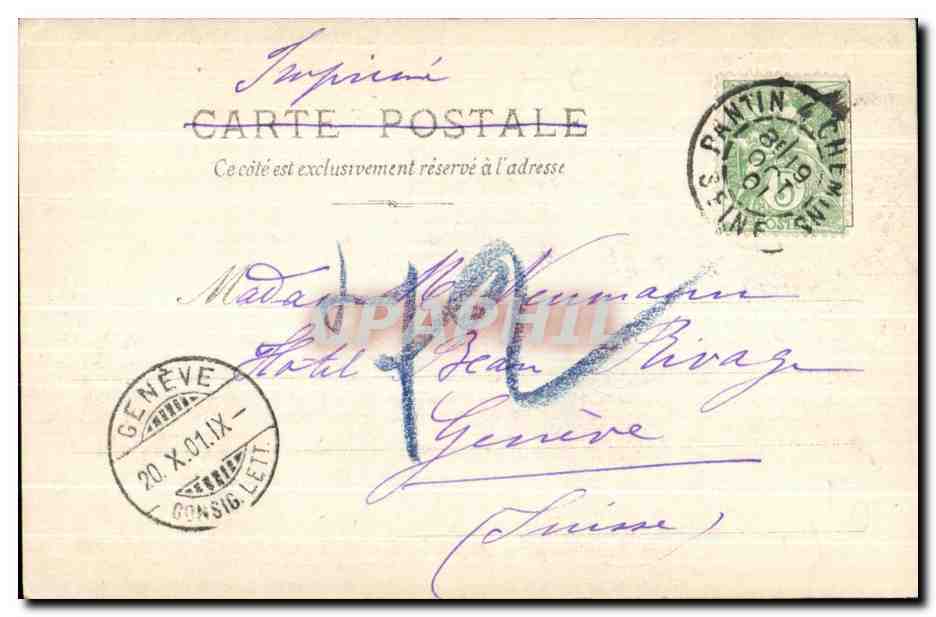 Imprimé
CARTE POSTALE
Ce côté est exclusivement réservé à l'adresse
PANTIN 4 CHEMINS
SEINE
5
POSTES
Madame Neumann
Hôtel Beau Rivage
Genève
(Suisse)
42
CPAPHIL
GENÈVE
20.X.01.IX-
CONSIG. LETT.